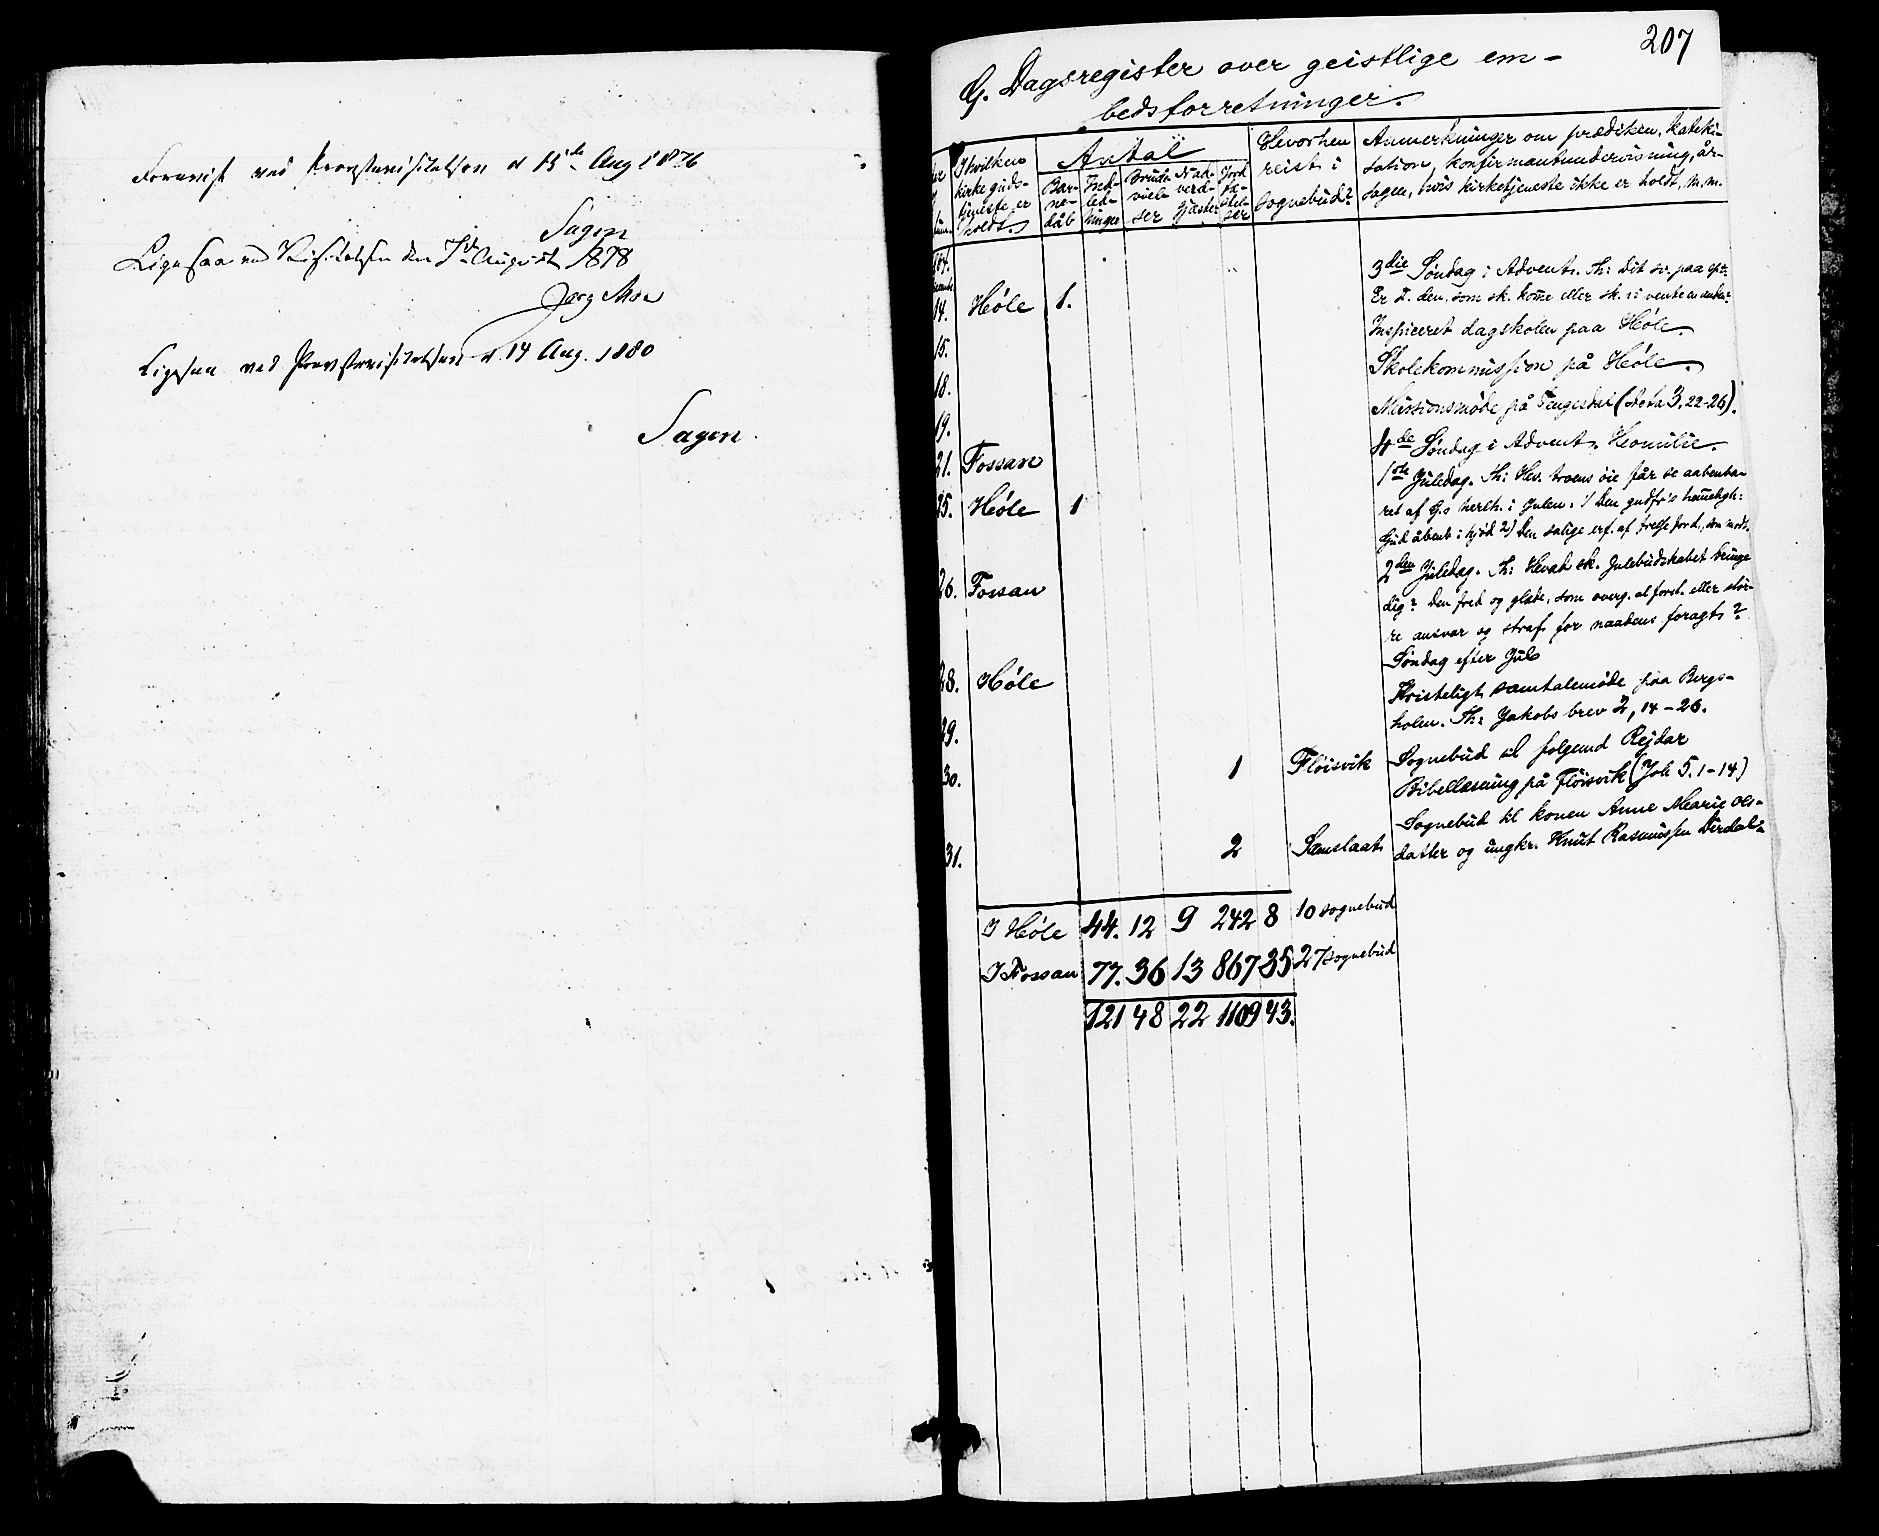 Forevist ved Provstevisitatsen d 15de Aug 1876
Sagen
Ligesaa ved Visitatsen den 7de August 1878
Jørg Moe
Ligesaa ved Provstevisitatsen d. 14 Aug. 1880
Sagen.
207
G. Dagsregister over geistlige em-
bedsforretninger.
I hvilken
kirke guds-
tjeneste er
holdt.
Antal
Bar-
ne-
dåb
Ind-
led-
ninger
Brude-
viel-
ser
Nad-
verd-
gjæster
Jord-
fæ-
stel-
ser
Hvorhen
reist i
sognebud?
Anmerkninger om prædiken, kateki-
sation, konfirmantundervisning, år-
sagen, hvis kirketjeneste ikke er holdt, m.m.
14. Høle 1. 3die Søndag i Advent. Th: Dit sv. paa sp:
Er I. den, som sk. komme eller sk. vi vente en anden?
15. Inspiceret dagskolen paa Høle.
18. Skolekommission på Høle.
19. Missionsmøde på Tengesdal (3.22-26).
21. Fossan 4de Søndag i Advent. Homilie.
25. Høle 1 1ste Juledag. Th: Hv. troens øie får se aabenba-
ret af G.s herlh. i Julen. 1/ Den gudfr.s hemmeligh:
Gud åbenb. i kjød 2) Den salige erf. af frelse
26. Fossan 2den Juledag. Th: Hvad sk. Julebudskabet bringe
dig? Den fred og glæde, som overg. al forst. eller stør-
re ansvar og straf for naadens foragt?
28. Høle Søndag efter Jul
29. Kristeligt samtalemøde paa Bergs-
holen. Th: Jakobs brev 2, 14-26.
30. 1 Fløisvik Sognebud til Rejdar
Bibellæsning på Fløisvik (Joh 5.1-14)
31. 2 Sognebud til konen Anne Marie Ols-
datter og ungkr. Knut Rasmussen Dirdal
I Høle 44. 12 9 242 8 10 sognebud
I Fossan 77. 36 13 867 35 27 sognebud
121 48 22 1109 43.